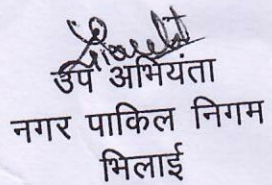 उप अभियंता
नगर पाकिल निगम
भिलाई